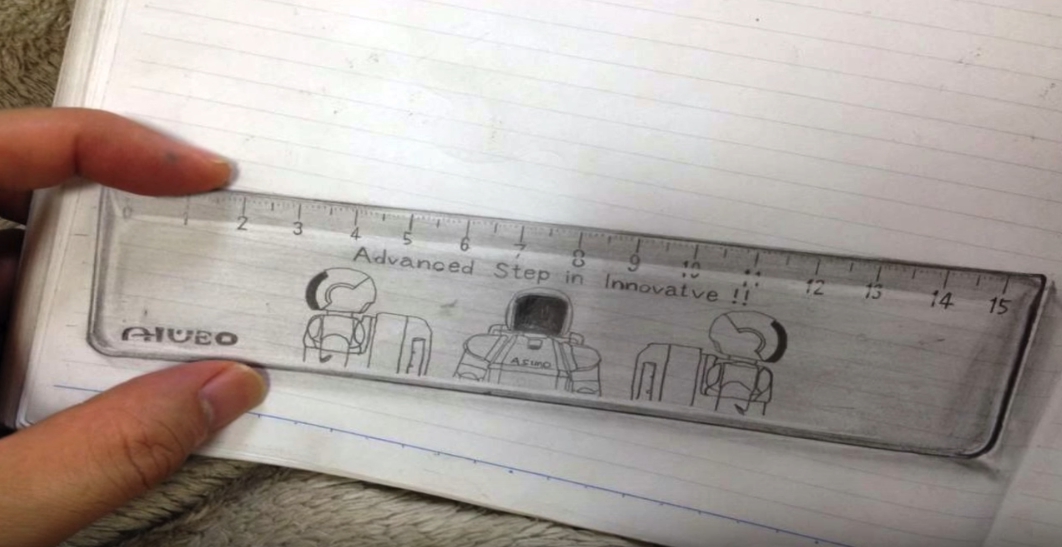 0 1 2 3 4 5 6 7 8 9 10 11 12 13 14 15
Advanced Step in Innovatve !!
ASIMO
AIUEO